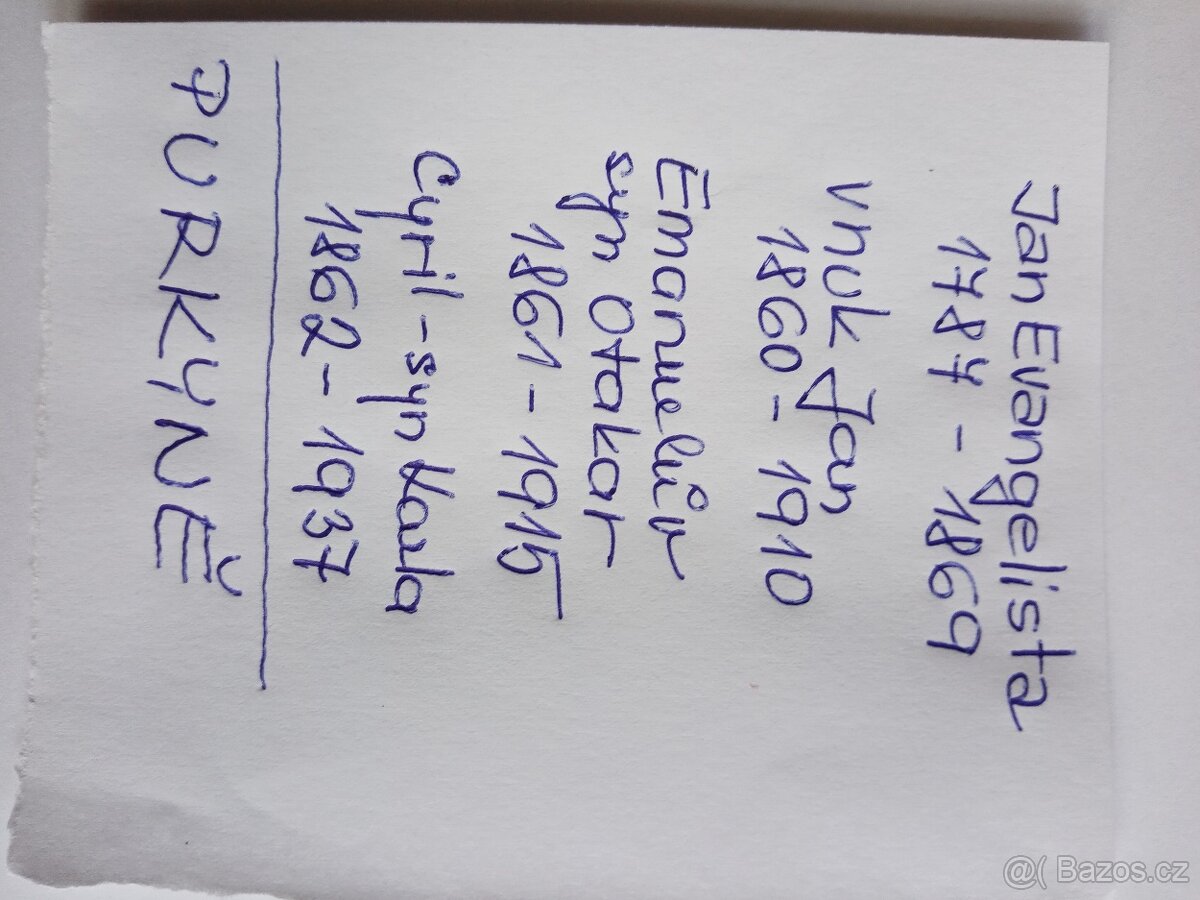 Jan Evangelista
1787 - 1869
vnuk Jan
1860 - 1910
Emanuelův
syn Otakar
1861 - 1915
Cyril - syn Karla
1862 - 1937
PURKYNĚ
@( Bazos.cz